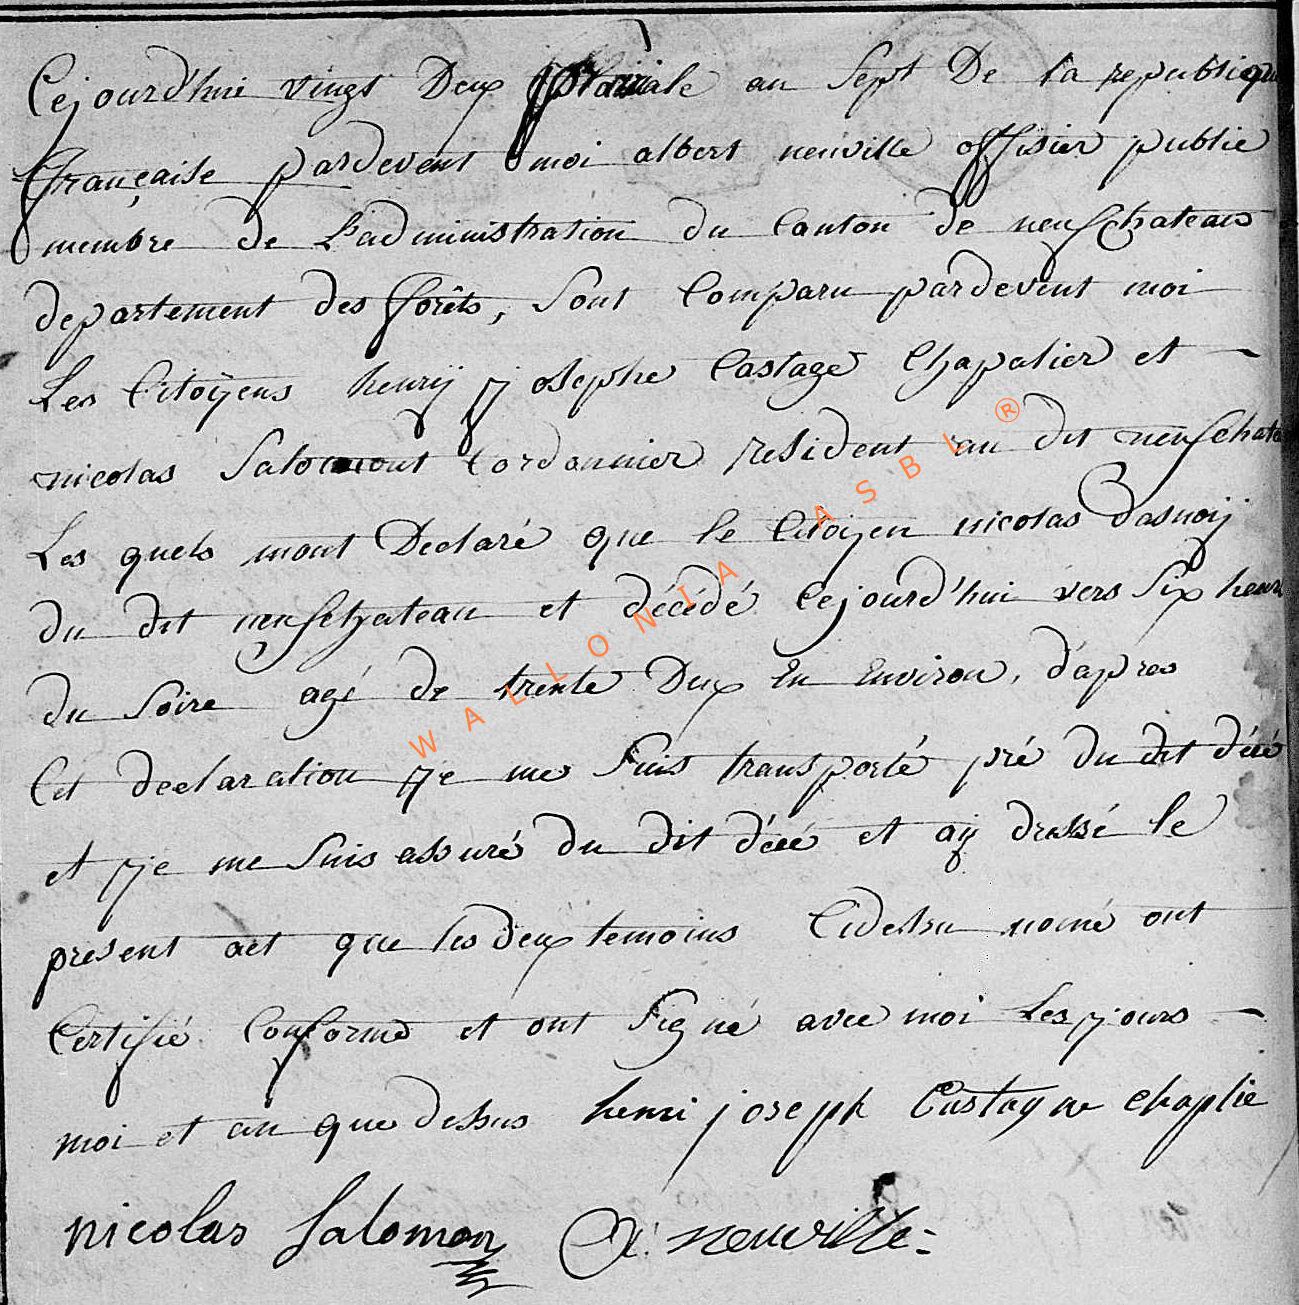 Cejourd'hui vingt Deux prairiale an Sept De la republique
française pardevent moi albert neuville offisier publie
membre de L'administration du Canton de neufchateau
departement des forêts, sont Comparu pardevent moi
Les Citoÿens henrij josephe Castage Chapalier et
nicolas Salomont Cordonnier resident au dit neufchate
Les quels mont Declaré que le Citoijen nicolas dasnoij
du dit neufchateau et décédé Cejourd'hui vers six heur
du soire agé de trente Deux En Environ, d'apres
Cet declaration je me suis transporté pré du dit décé
et je me suis assuré du dit décé et aij dressé le
present act que les deux temoins Cidessu nomé ont
Certifié Conforme et ont signé avec moi Les jours
moi et an que dessus henri joseph Castagne chaplie
nicolas Salomon A: neuville
WALLONIA ASBL ®